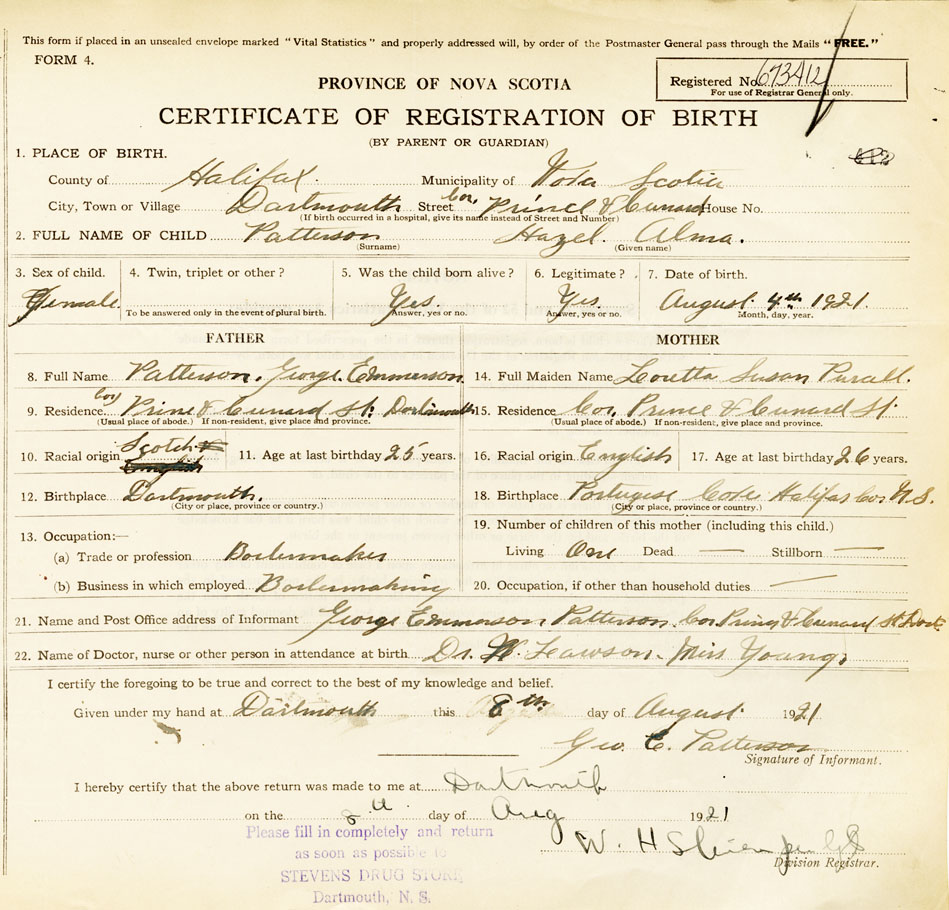 This form if placed in an unsealed envelope marked "Vital Statistics" and properly addressed will, by order of the Postmaster General pass through the Mails "FREE."
FORM 4.
PROVINCE OF NOVA SCOTIA
Registered No. 673412
For use of Registrar General only.
CERTIFICATE OF REGISTRATION OF BIRTH
(BY PARENT OR GUARDIAN)
1. PLACE OF BIRTH.
County of Halifax Municipality of Nova Scotia
City, Town or Village Dartmouth Street Cor. Prince & Cunard House No.
(If birth occurred in a hospital, give its name instead of Street and Number)
2. FULL NAME OF CHILD Patterson Hazel Alma.
(Surname) (Given name)
3. Sex of child. 4. Twin, triplet or other? 5. Was the child born alive? 6. Legitimate? 7. Date of birth.
Female Yes. Yes. August 4th 1921.
To be answered only in the event of plural birth. Answer, yes or no. Answer, yes or no. Month, day, year.
FATHER MOTHER
8. Full Name Patterson, George Emmerson 14. Full Maiden Name Loretta Susan Purall.
9. Residence Cor Prince & Cunard St. Dartmouth 15. Residence Cor. Prince & Cunard St.
(Usual place of abode.) If non-resident, give place and province. (Usual place of abode.) If non-resident, give place and province.
10. Racial origin Scotch English 11. Age at last birthday 25 years. 16. Racial origin English 17. Age at last birthday 26 years.
12. Birthplace Dartmouth. 18. Birthplace Portugese Cove Halifax Co. N.S.
(City or place, province or country.) (City or place, province or country.)
13. Occupation:— 19. Number of children of this mother (including this child.)
(a) Trade or profession Boilermaker Living One Dead — Stillborn —
(b) Business in which employed Boilermaking 20. Occupation, if other than household duties —
21. Name and Post Office address of Informant George Emmerson Patterson, Cor Prince & Cunard St Dart.
22. Name of Doctor, nurse or other person in attendance at birth Dr. Lawson. Miss Young.
I certify the foregoing to be true and correct to the best of my knowledge and belief.
Given under my hand at Dartmouth this 8th day of August 1921
Geo. E. Patterson
Signature of Informant.
I hereby certify that the above return was made to me at Dartmouth
on the 8th day of Aug 1921
Please fill in completely and return
as soon as possible to
STEVENS DRUG STORE,
Dartmouth, N. S.
W. H.
Division Registrar.